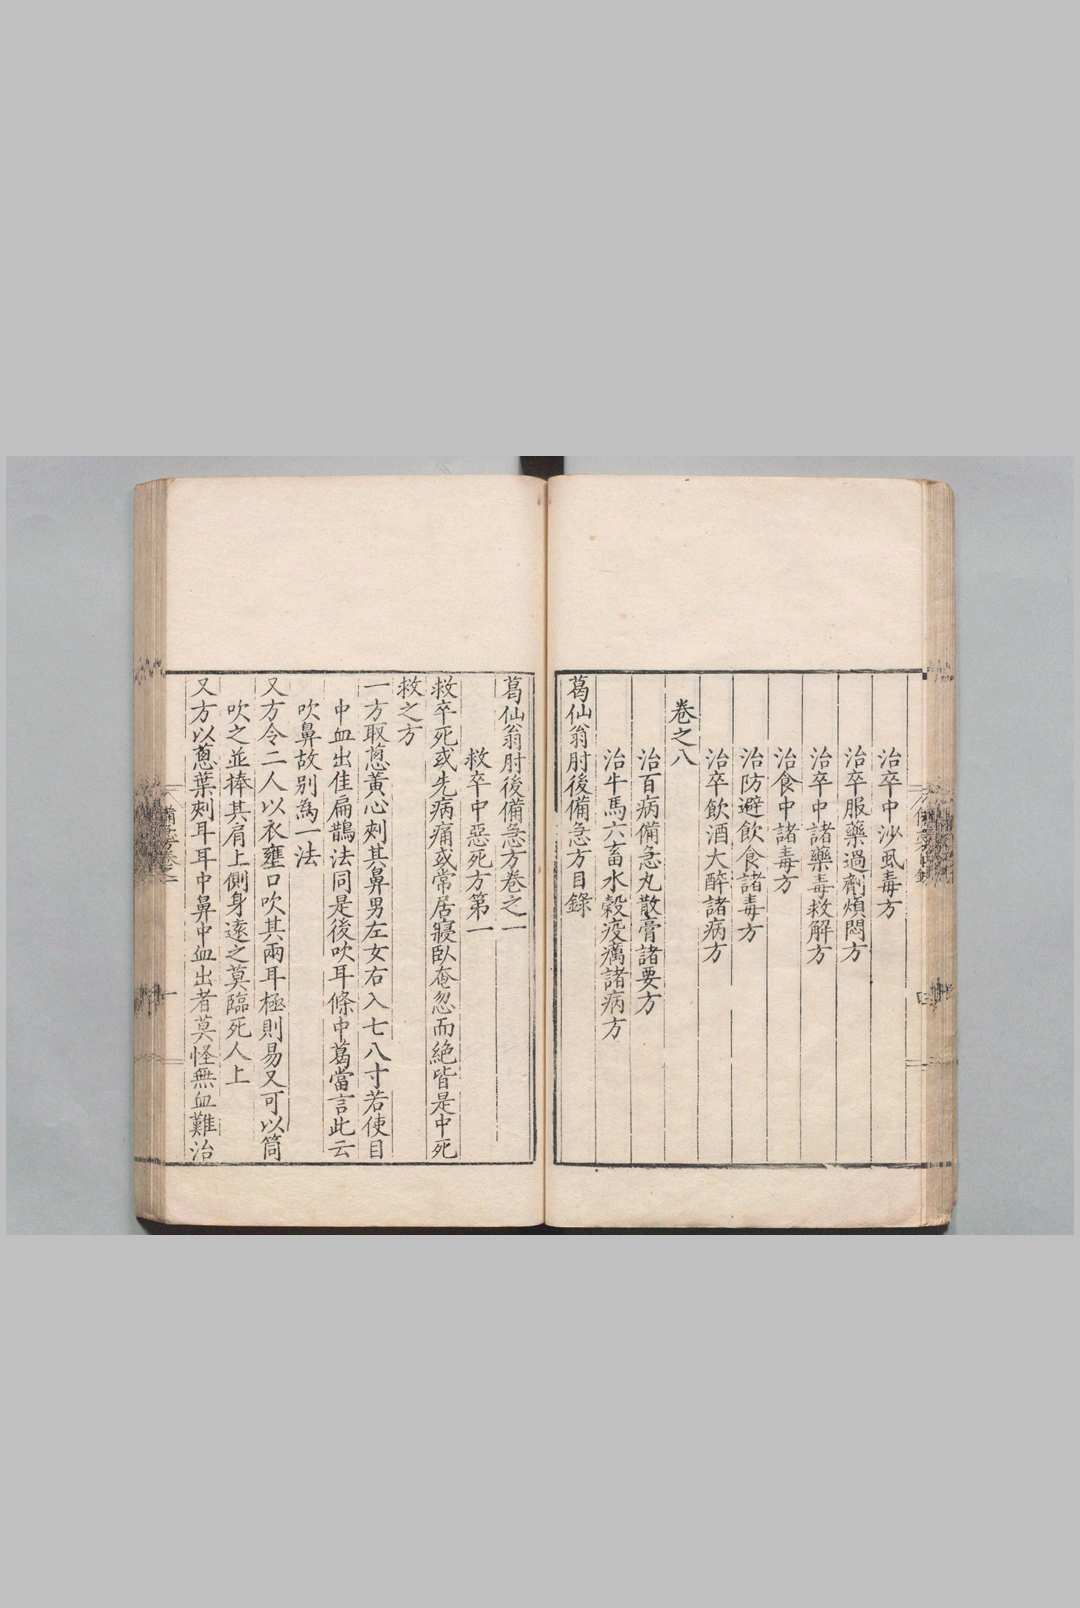 治卒中沙虱毒方
治卒服藥過劑煩悶方
治卒中諸藥毒救解方
治食中諸毒方
治防避飲食諸毒方
治卒飲酒大醉諸病方
卷之八
治百病備急丸散膏諸要方
治牛馬六畜水穀疫癘諸病方
葛仙翁肘後備急方目錄
葛仙翁肘後備急方卷之一
救卒中惡死方第一
救卒死或先病痛或常居寢臥奄忽而絕皆是中死
救之方
一方取葱黃心刾其鼻男左女右入七八寸若使目
中血出佳扁鵲法同是後吹耳條中葛當言此云
吹鼻故别為一法
又方令二人以衣壅口吹其兩耳極則易又可以筒
吹之並捧其肩上側身遠之莫臨死人上
又方以葱葉刾耳耳中鼻中血出者莫怪無血難治